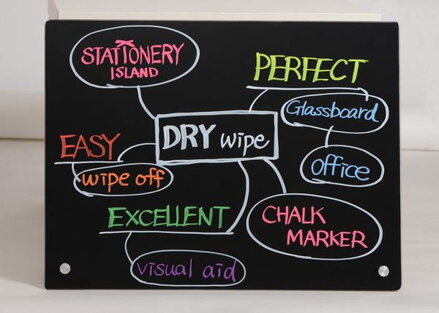 STATIONERY
ISLAND
PERFECT
Glassboard
office
DRY wipe
EASY
wipe off
EXCELLENT
visual aid
CHALK
MARKER